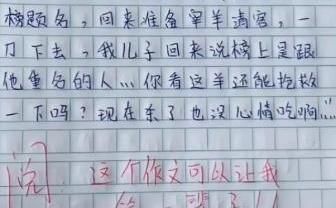 榜题名，回来准备宰羊请客，一
刀下去，我儿子回来说榜上是跟
他重名的人…你看这羊还能抢救
一下吗？现在杀了也没心情吃啊…
阅
这个作文可以让我